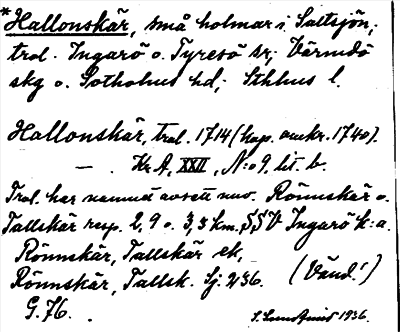 *Hallonskär, små holmar i Saltsjön;
trol. Ingarö o. Tyresö sr; Värmdö
skg o. Sotholms hd; Sthlms l.
Hallonskär, trol. 1714 (kop. omkr. 1740).
— . Kr A, XXII, N:o 9, lit. b.
Trol. har namnet avsett nuv. Rönnskär o.
Tallskär resp. 2,9 o. 3,3 km. SSV Ingarö k:a.
Rönnskär, Tallskär ek,
Rönnskär, Tallsk. Sj. 236. (Vänd!)
G. 76.
1936.